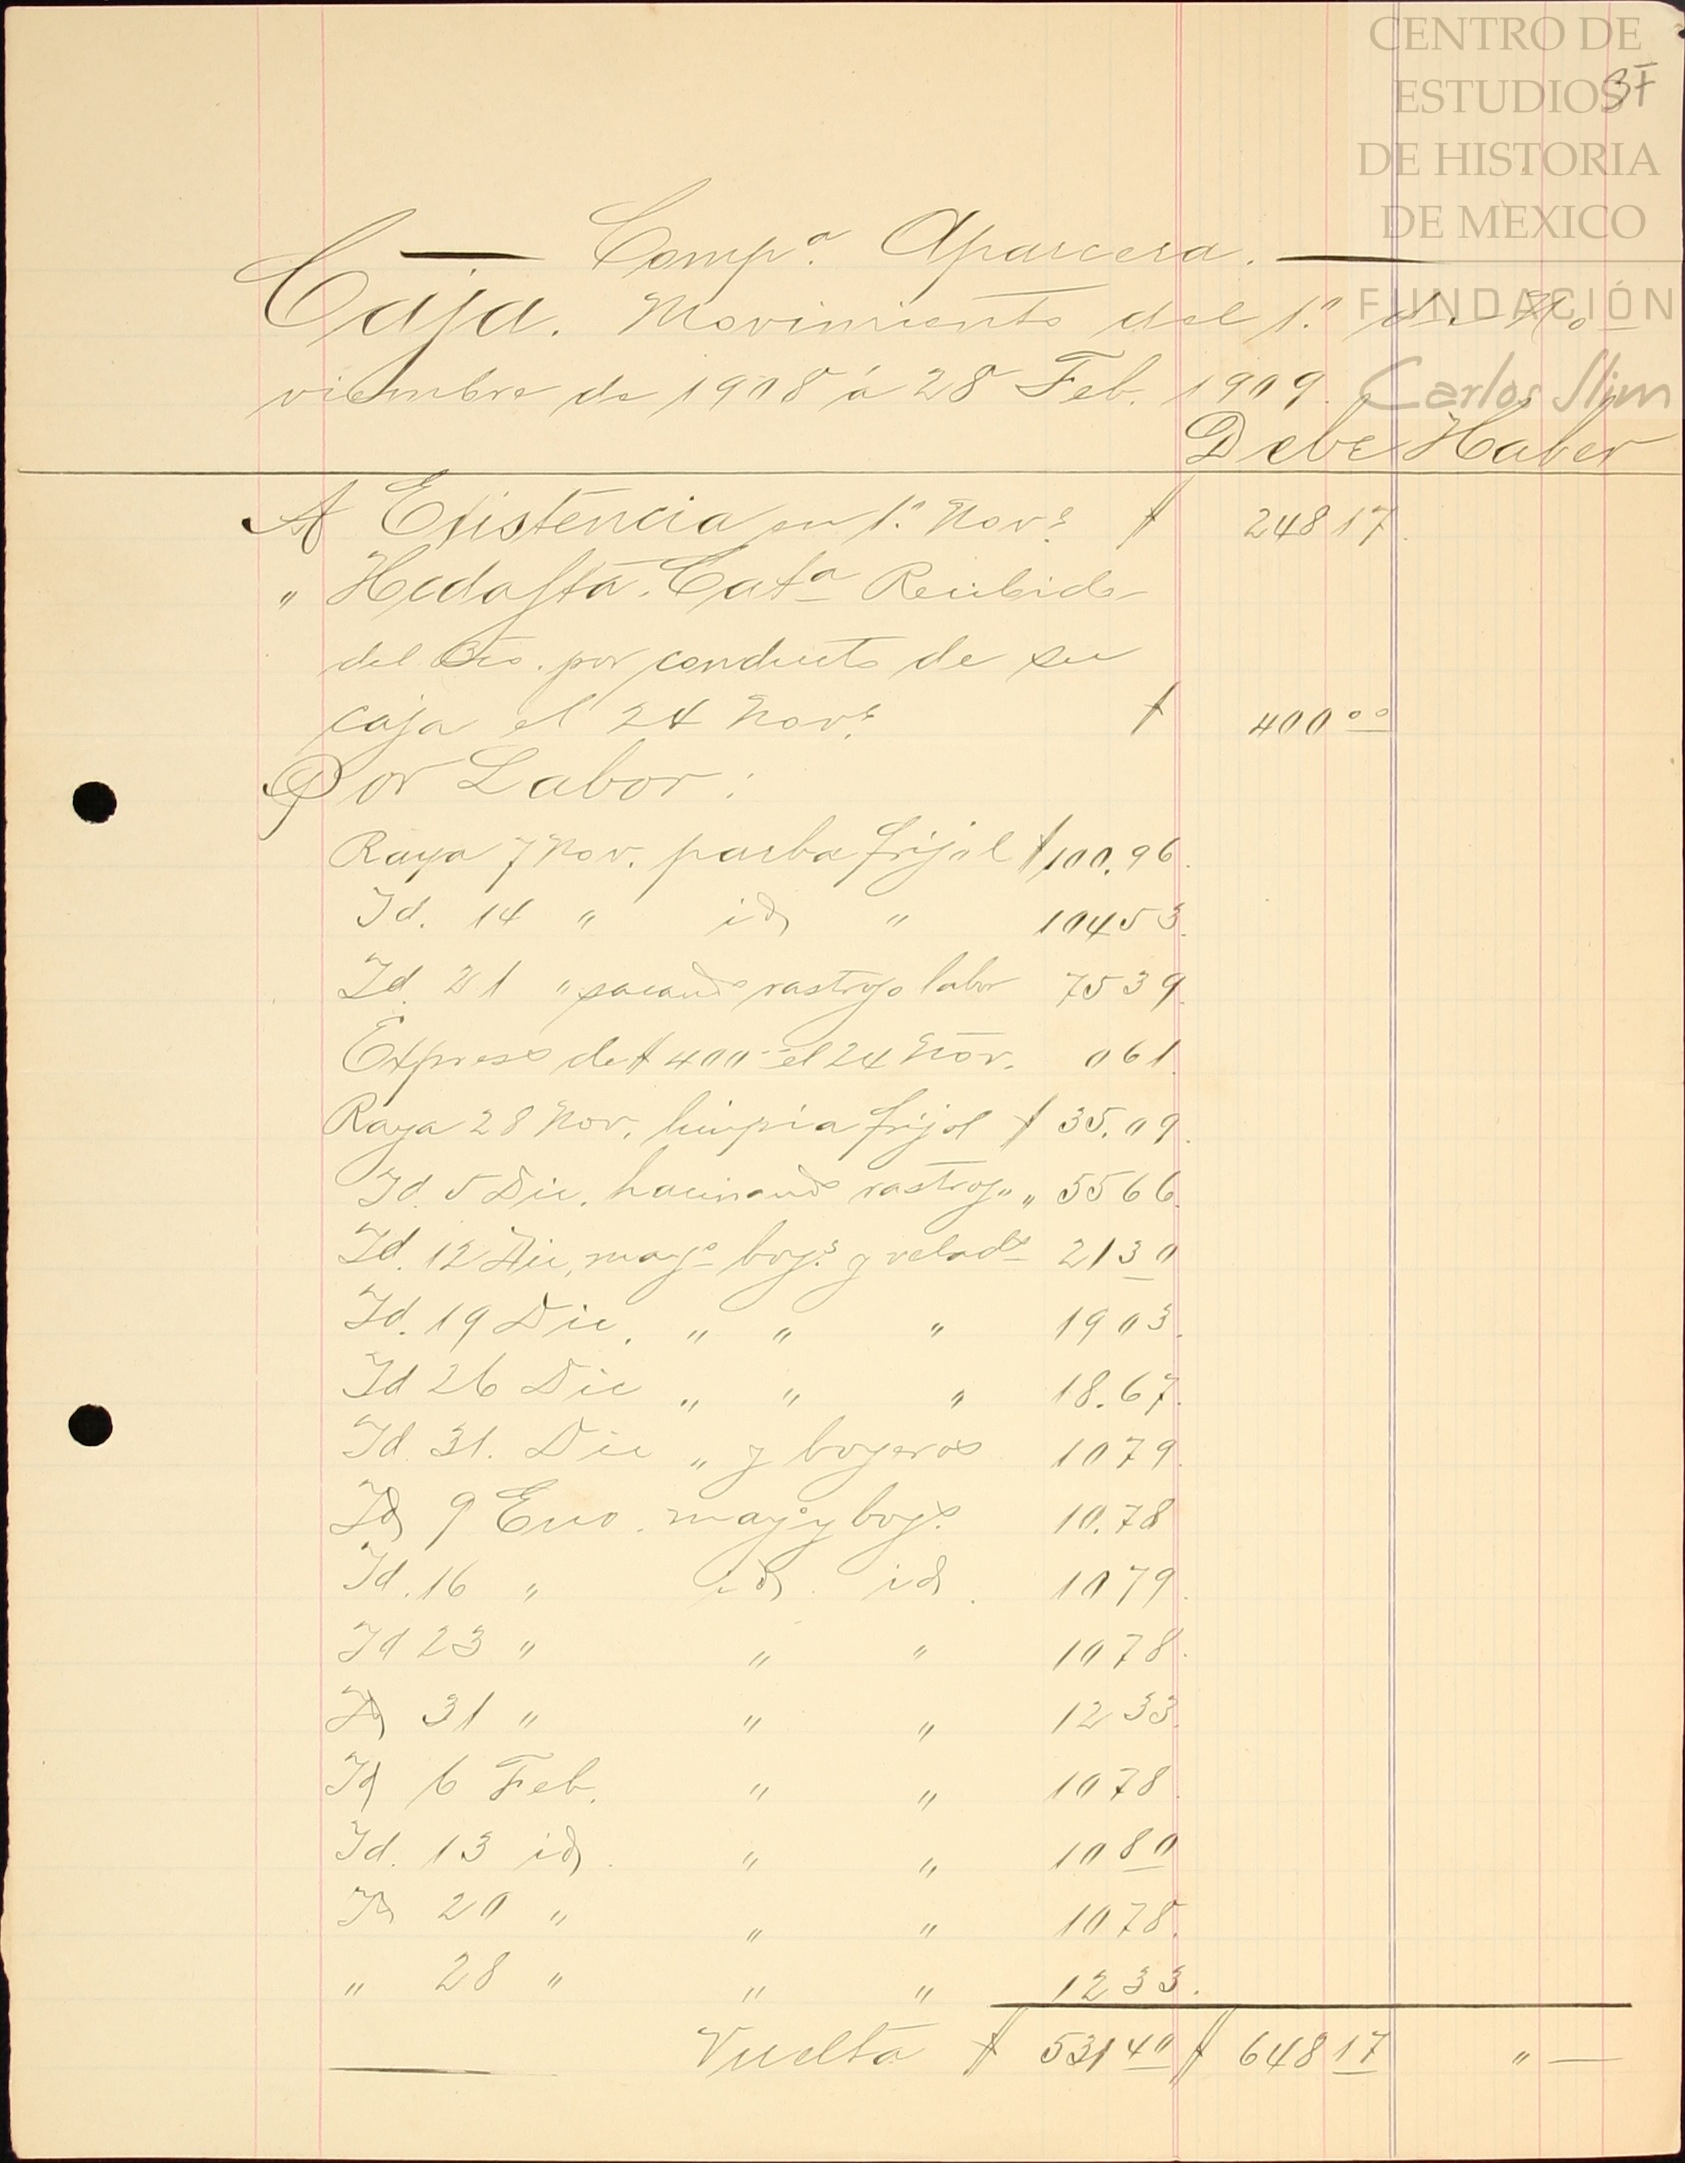 CENTRO DE
ESTUDIOS
DE HISTORIA
DE MEXICO
FUNDACIÓN
Carlos Slim
Compª. Aparcera.
Caja. Movimiento del 1º. de No-
viembre de 1908 á 28 Feb. 1909.
Debe Haber
A Existencia en 1º. Nove. $ 248 17.
" Hcda Sta. Catª Recibido
del Bco. por conducto de su
caja el 24 Nove. $ 400 00
Por Labor:
Raya 7 Nov. frijol $ 100.96.
Id. 14 " id " 104 53.
Id. 21 " sacando rastrojo labor 75 39.
Express de $ 400 00 el 24 Nov. 0 61.
Raya 28 Nov. limpia frijol $ 35.09.
Id. 5 Dic. hacinando rastrojo " 55 66.
Id. 12 Dic. mayo boys. y velads 21 30
Id. 19 Dic. " " " 19 03.
Id 26 Dic " " " 18.67.
Id. 31. Dic " y boyeros 10 79.
Id 9 Eno. mayo y boys. 10.78
Id. 16 " id. id. 10 79.
Id 23 " " " 10 78.
Id 31 " " " 12 33.
Id 6 Feb. " " 10 78.
Id. 13 id. " " 10 80
Id 20 " " " 10 78.
" 28 " " " 12 33.
Vuelta $ 531 40 $ 648 17 " —